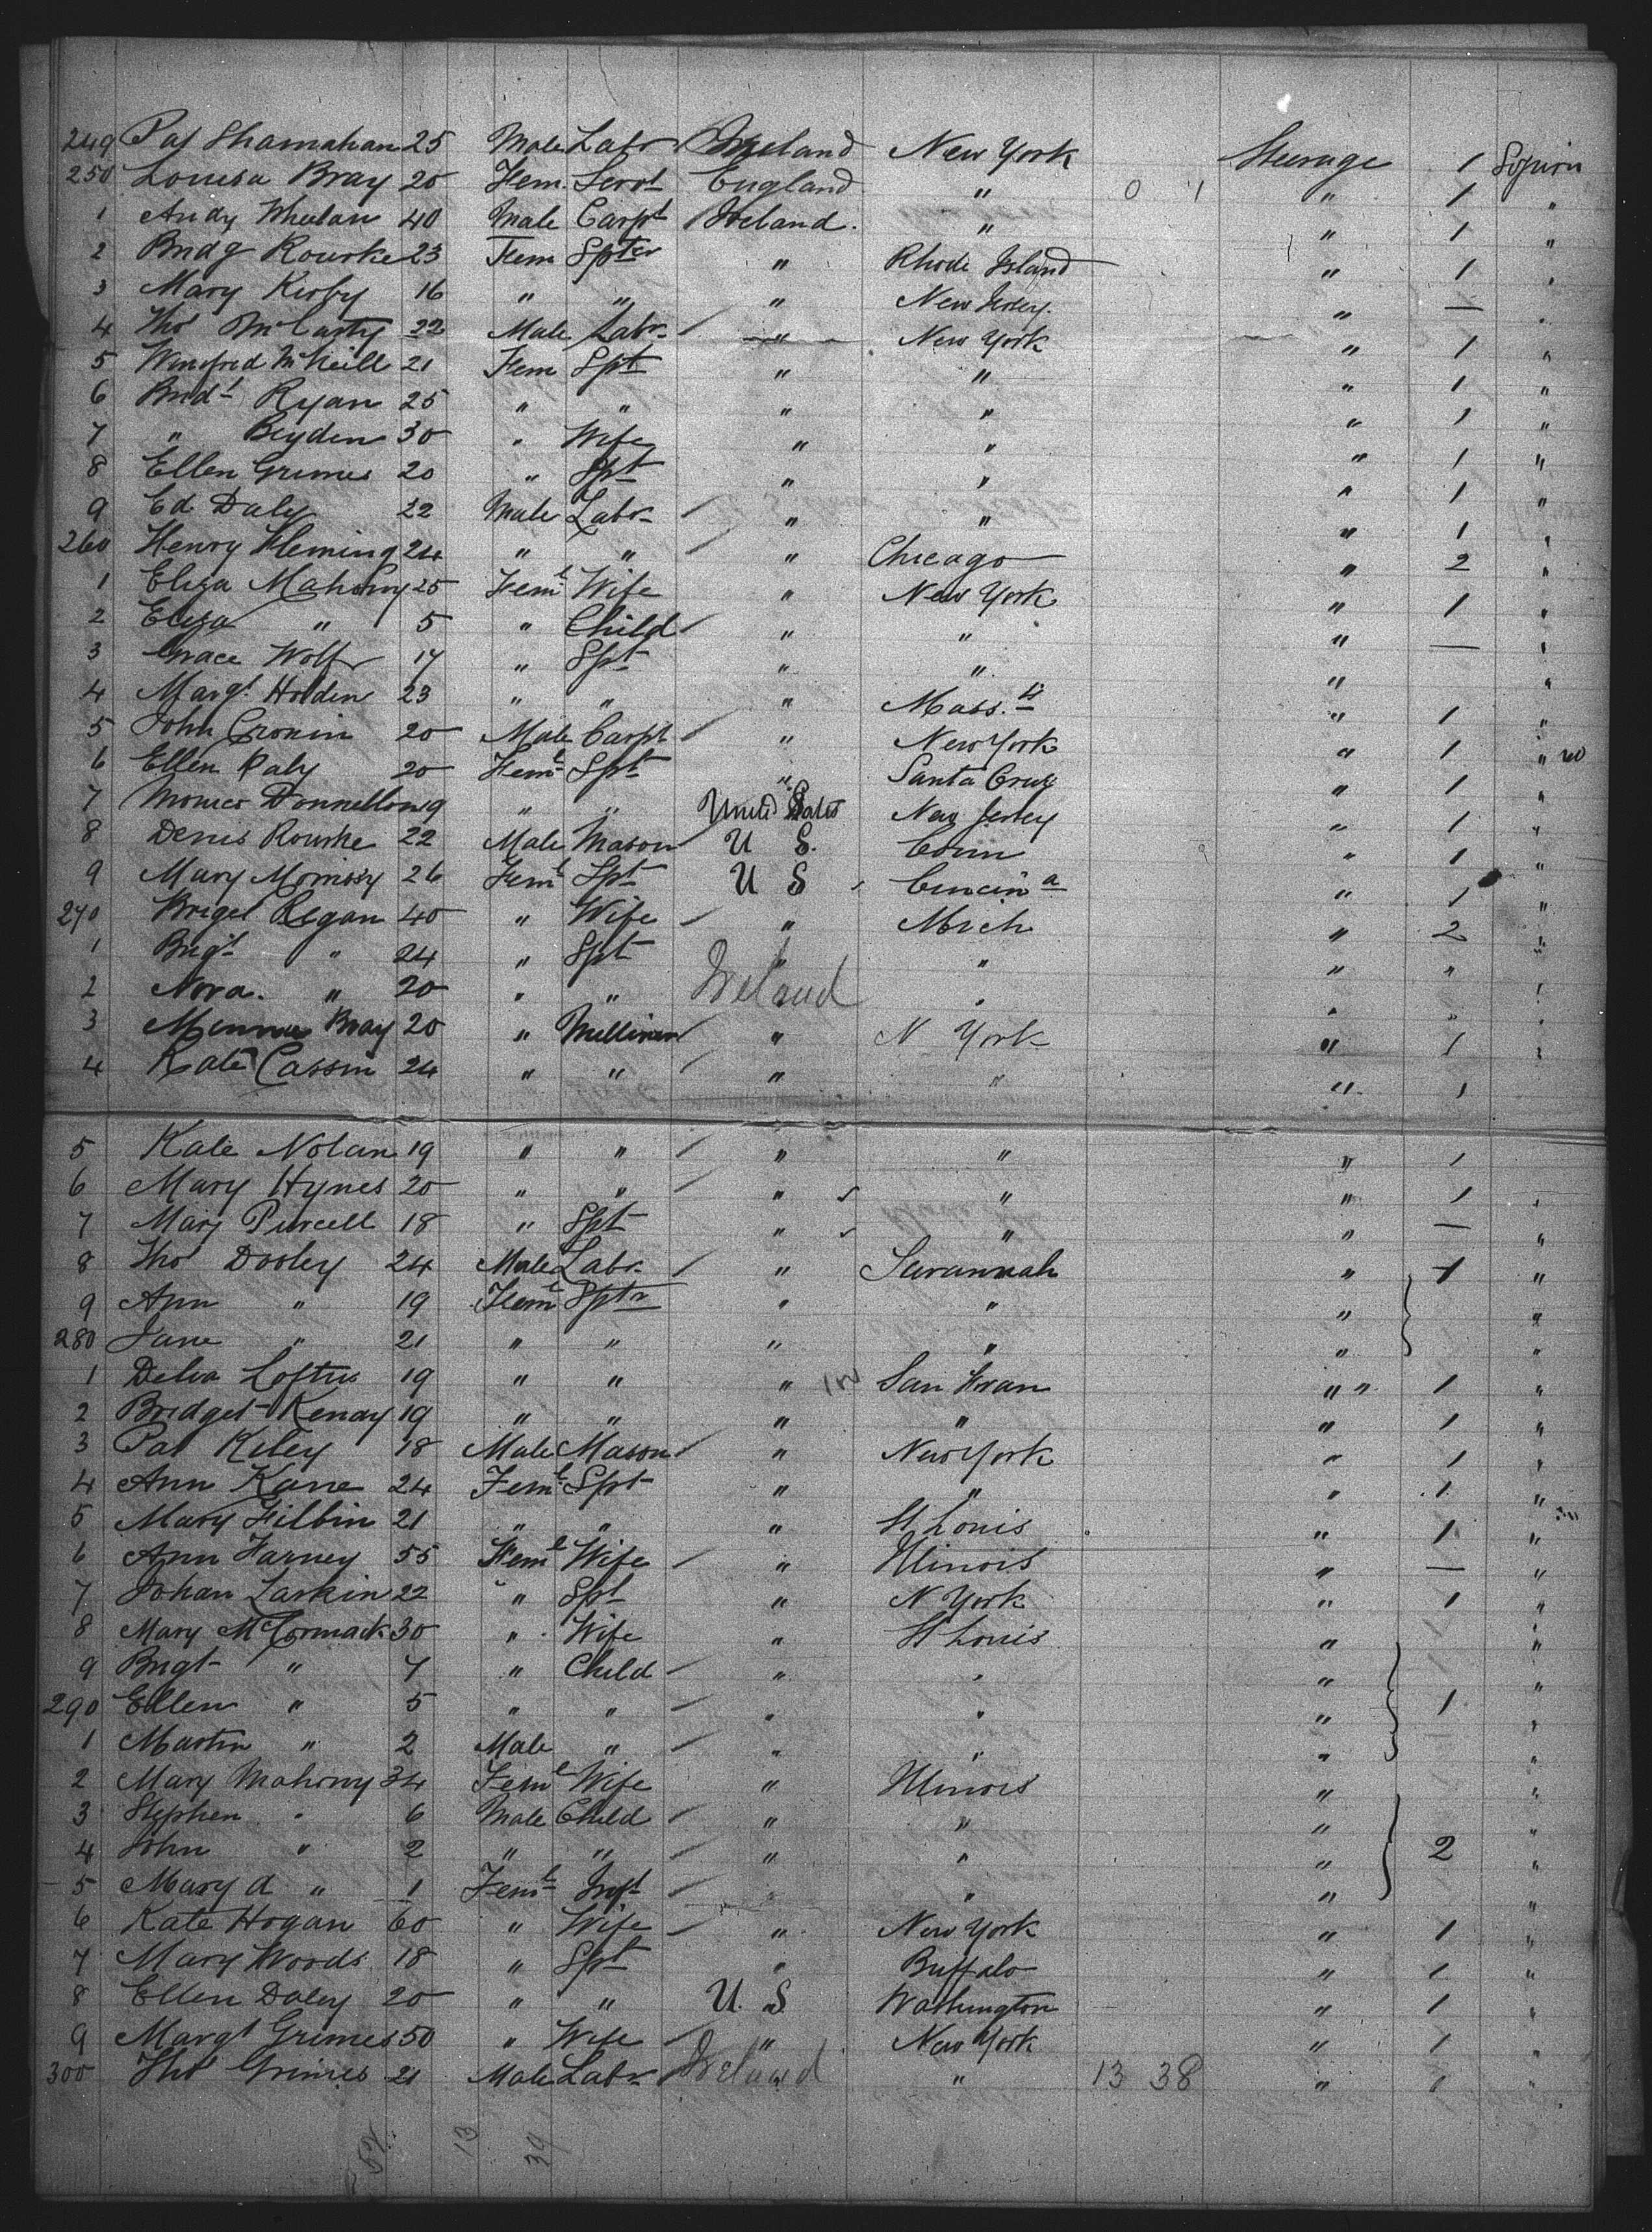 249 Pat Shanahan 25 Male Labr Ireland New York Steerage 1 Sojurn
250 Louisa Bray 20 Fem. Servt England " 0 1 " 1 "
1 Andy Wheelan 40 Male Carpt Ireland. " " 1 "
2 Bridg Rourke 23 Fem Spter " Rhode Island " 1 "
3 Mary Kirby 16 " " " New Jersey. " — "
4 Tho McCarty 22 Male Labr " New York " 1 "
5 Winifred McNeill 21 Fem Spt " " " 1 "
6 Bridt Ryan 25 " " " " " 1 "
7 " Beyden 30 " Wife " " " 1 "
8 Ellen Grimes 20 " Spt " " " 1 "
9 Ed Daly 22 Male Labr " " " 1 "
260 Henry Fleming 24 " " " Chicago " 2 "
1 Eliza Mahony 25 Feml Wife " New York " 1 "
2 Eliza " 5 " Child " " " — "
3 Grace Wolfe 17 " Spt " " " "
4 Margt Holden 23 " " " Mass.ts " 1 "
5 John Cronin 20 Male Carpt " New York " 1 "
6 Ellen Daly 20 Feml Spt " Santa Cruz " 1 "
7 Donnellon 19 " " United States New Jersey " 1 "
8 Denis Rourke 22 Male Mason U S. Conn " 1 "
9 Mary Morrissy 26 Feml Spt U S Cincina " 1 "
270 Briget Regan 40 " Wife " Mich " 2 "
1 Brigt " 24 " Spt " " " " "
2 Nora. " 20 " " Ireland " " " "
3 Minnie Bray 20 " Milliner " N York " 1 "
4 Kate Cassin 24 " " " " " 1
5 Kate Nolan 19 " " " " " 1
6 Mary Hynes 20 " " " " " 1 "
7 Mary Purcell 18 " Spt " " " — "
8 Tho Dooley 24 Male Labr " Savannah " 1 "
9 Ann " 19 Feml Sptr " " " "
280 Jane " 21 " " " " " "
1 Delia Loftus 19 " " " San Fran " " 1 "
2 Bridget Kenay 19 " " " " " 1 "
3 Pat Kiley 18 Male Mason " New York " 1 "
4 Ann Kane 24 Feml Spt " " " 1 "
5 Mary Filbin 21 " " " St Louis " 1 "
6 Ann Farney 55 Feml Wife " Illinois " — "
7 Johan Larkin 22 " Spt " N York " 1 "
8 Mary McCormack 30 " Wife " St Louis " "
9 Brigt " 7 " Child " " " "
290 Ellen " 5 " " " " " 1 "
1 Martin " 2 Male " " " " "
2 Mary Mahony 34 Feml Wife " Illinois " "
3 Stephen " 6 Male Child " " " "
4 John " 2 " " " " " 2 "
5 Mary A " 1 Feml Inft " " " "
6 Kate Hogan 60 " Wife " New York " 1 "
7 Mary Woods 18 " Spt " Buffalo " 1 "
8 Ellen Daley 20 " " U. S Washington " 1 "
9 Margt Grimes 50 " Wife " New York " 1 "
300 Tho Grimes 21 Male Labr Ireland " 13 38 " 1 "
52 13 39